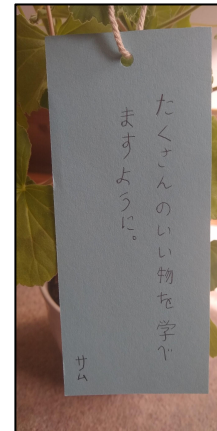 たくさんのいい物を学べ
ますように。
サム